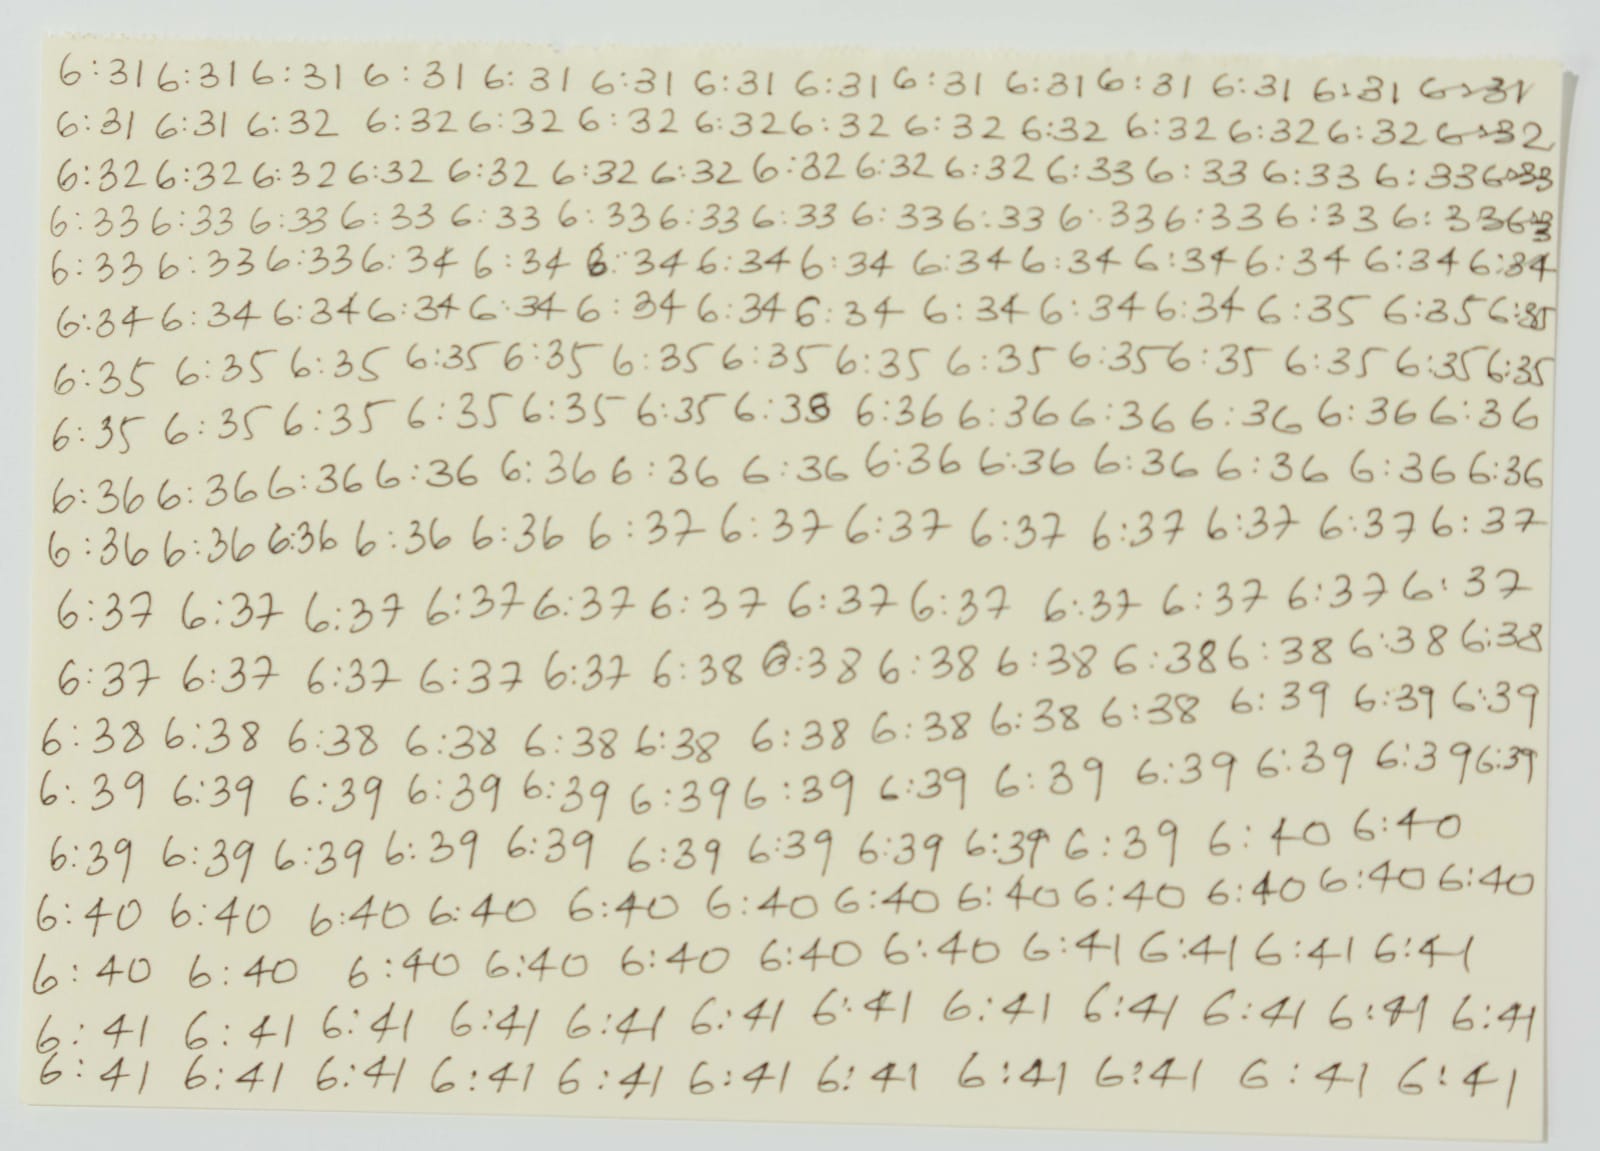 6:31 6:31 6:31 6:31 6:31 6:31 6:31 6:31 6:31 6:31 6:31 6:31 6:31 6:31
6:31 6:31 6:32 6:32 6:32 6:32 6:32 6:32 6:32 6:32 6:32 6:32 6:32 6:32
6:32 6:32 6:32 6:32 6:32 6:32 6:32 6:32 6:32 6:32 6:33 6:33 6:33 6:33 6:33
6:33 6:33 6:33 6:33 6:33 6:33 6:33 6:33 6:33 6:33 6:33 6:33 6:33 6:33 6:33
6:33 6:33 6:33 6:34 6:34 6:34 6:34 6:34 6:34 6:34 6:34 6:34 6:34 6:34
6:34 6:34 6:34 6:34 6:34 6:34 6:34 6:34 6:34 6:34 6:34 6:35 6:35 6:35
6:35 6:35 6:35 6:35 6:35 6:35 6:35 6:35 6:35 6:35 6:35 6:35 6:35 6:35
6:35 6:35 6:35 6:35 6:35 6:35 6:36 6:36 6:36 6:36 6:36 6:36 6:36
6:36 6:36 6:36 6:36 6:36 6:36 6:36 6:36 6:36 6:36 6:36 6:36 6:36
6:36 6:36 6:36 6:36 6:36 6:37 6:37 6:37 6:37 6:37 6:37 6:37 6:37
6:37 6:37 6:37 6:37 6:37 6:37 6:37 6:37 6:37 6:37 6:37 6:37
6:37 6:37 6:37 6:37 6:37 6:38 6:38 6:38 6:38 6:38 6:38 6:38 6:38
6:38 6:38 6:38 6:38 6:38 6:38 6:38 6:38 6:38 6:38 6:39 6:39 6:39
6:39 6:39 6:39 6:39 6:39 6:39 6:39 6:39 6:39 6:39 6:39 6:39 6:39
6:39 6:39 6:39 6:39 6:39 6:39 6:39 6:39 6:39 6:39 6:40 6:40
6:40 6:40 6:40 6:40 6:40 6:40 6:40 6:40 6:40 6:40 6:40 6:40
6:40 6:40 6:40 6:40 6:40 6:40 6:40 6:41 6:41 6:41 6:41
6:41 6:41 6:41 6:41 6:41 6:41 6:41 6:41 6:41 6:41 6:41 6:41
6:41 6:41 6:41 6:41 6:41 6:41 6:41 6:41 6:41 6:41 6:41